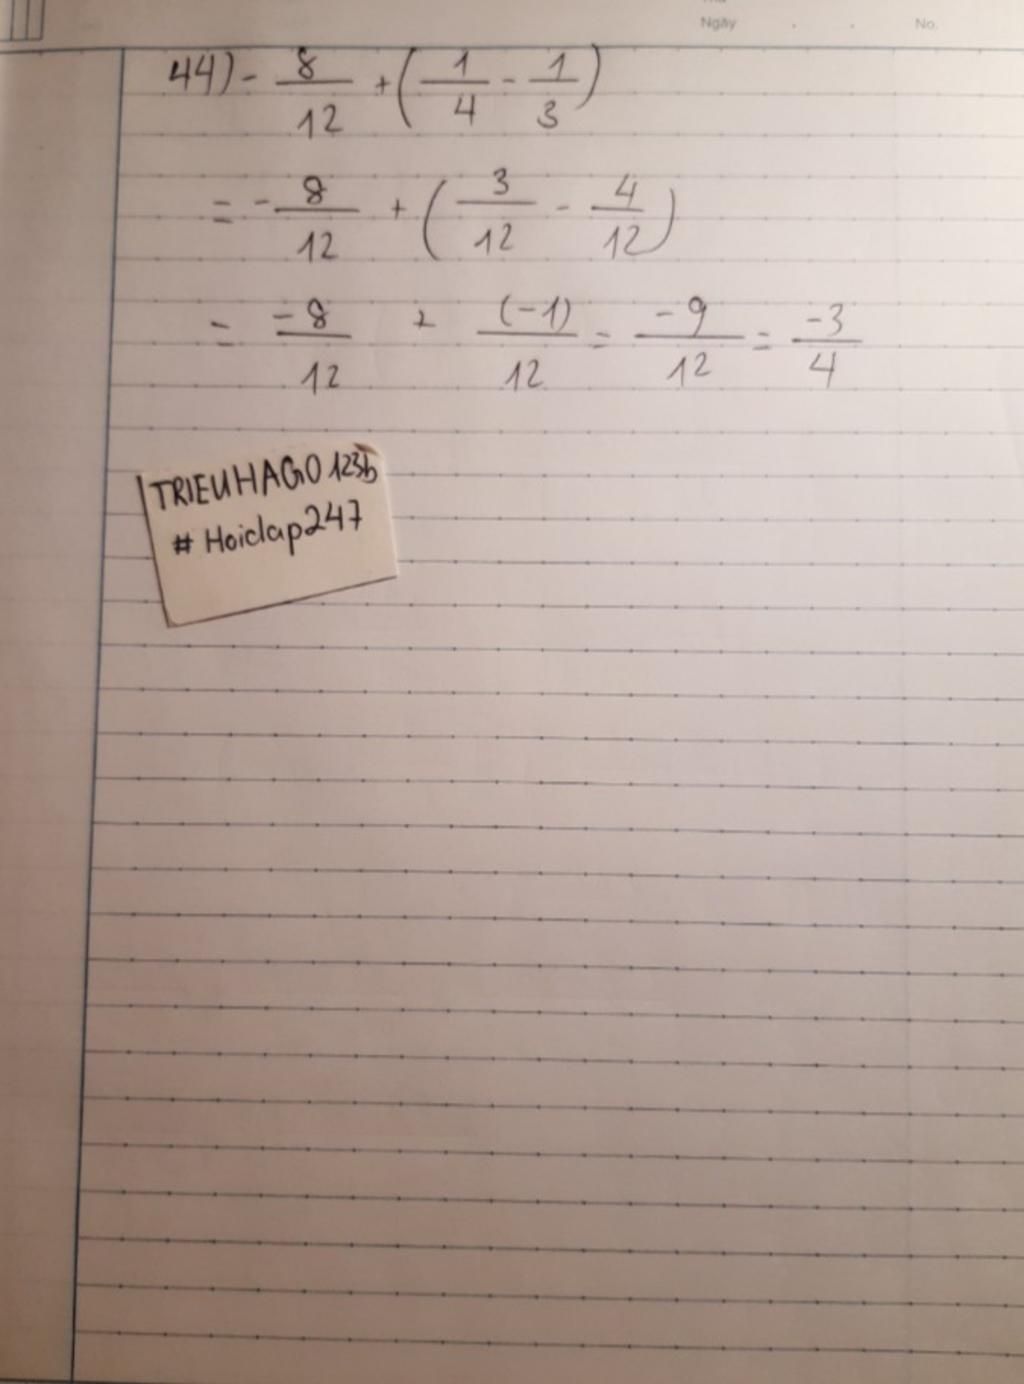 Ngày . . No.
44) - 8/12 + (1/4 - 1/3)
= - 8/12 + (3/12 - 4/12)
= -8/12 + (-1)/12 = -9/12 = -3/4
TRIEUHAGO123b
# Hoidap247